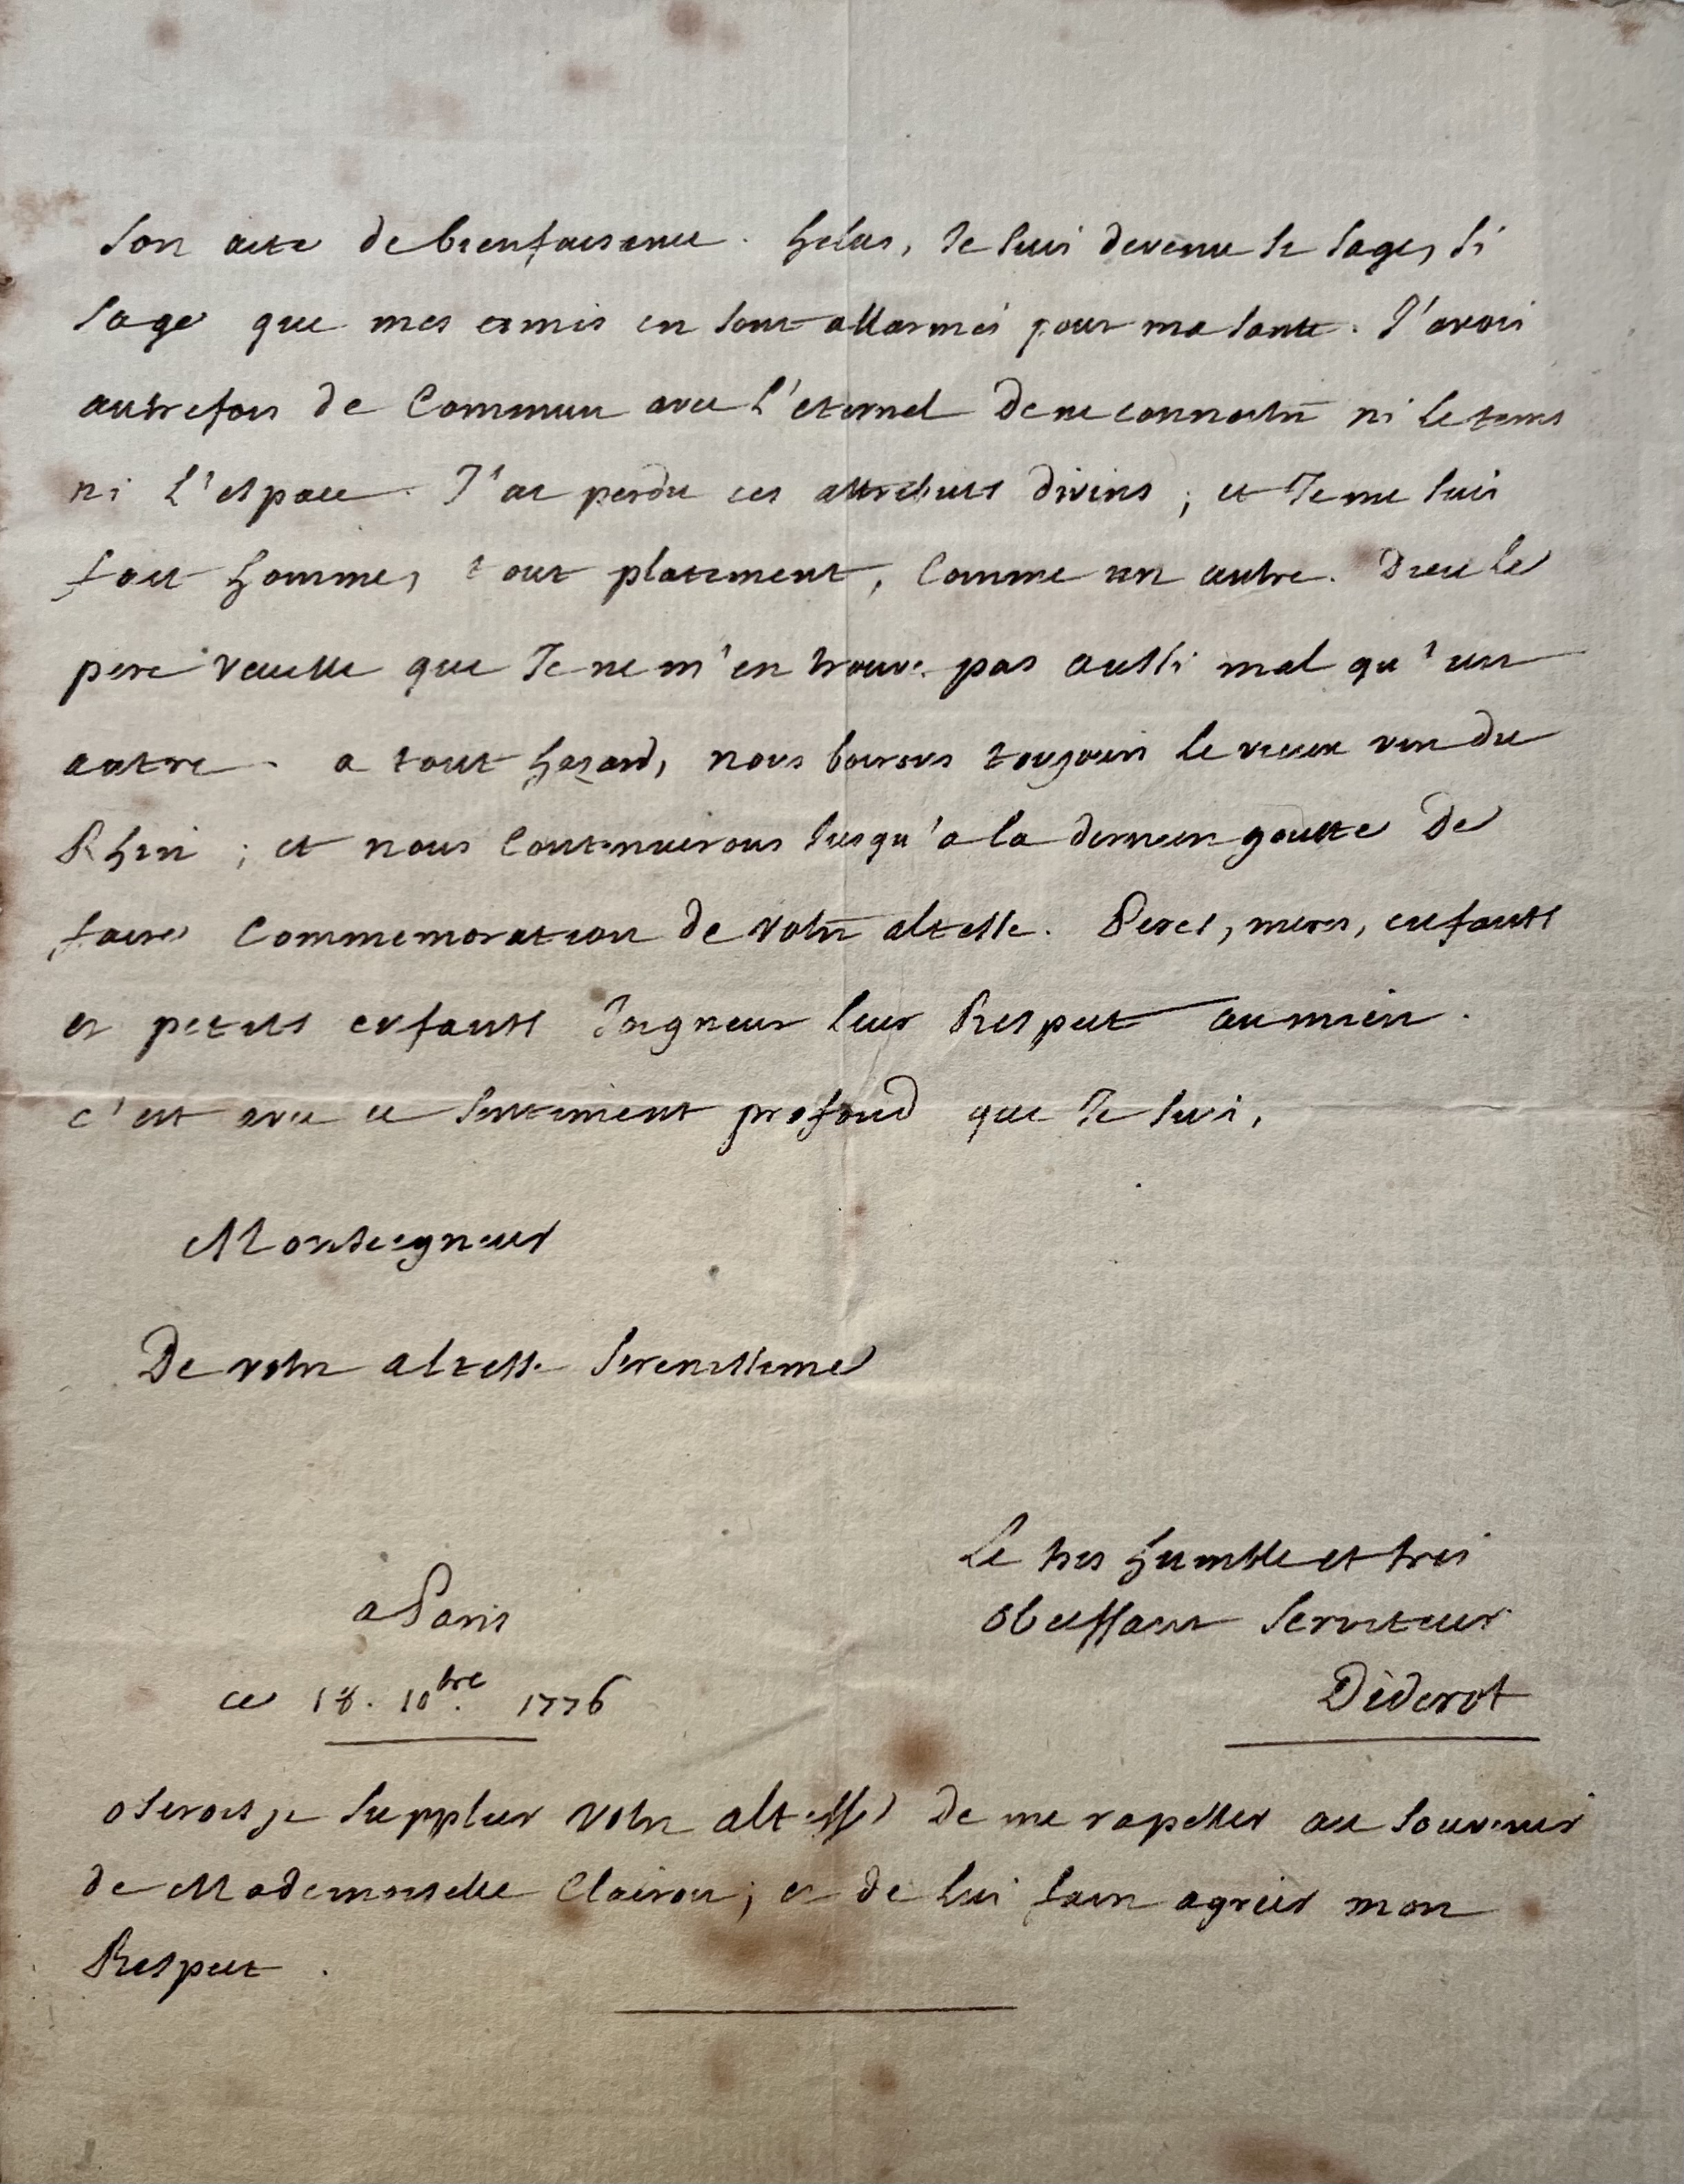 son acte de bienfaisance. helas, Je suis devenu si sage, si
sage que mes amis en sont allarmés pour ma santé. J'avois
autrefois de commun avec L'eternel De ne connoitre ni le tems
ni L'espace. J'ai perdu ces attributs divins ; et Je me suis
fait homme, tout platement, comme un autre. Dieu le
pere veuille que Je ne m'en trouve pas aussi mal qu'un
autre. a tout hazard, nous buvons toujours le vieux vin du
Rhin ; et nous continuerons Jusqu'a la derniere goutte De
faire commemoration de votre altesse. Peres, meres, enfants
et petits enfants Joignent leur Respect au mien.
c'est avec ce sentiment profond que Je suis,
Monseigneur
De votre altesse serenissime
Le tres humble et tres
obeissant serviteur
Diderot
a Paris
ce 18. 10bre. 1776
oserois je supplier votre altesse De me rapeller au souvenir
de Mademoiselle Clairon ; et de lui faire agréer mon
Respect.